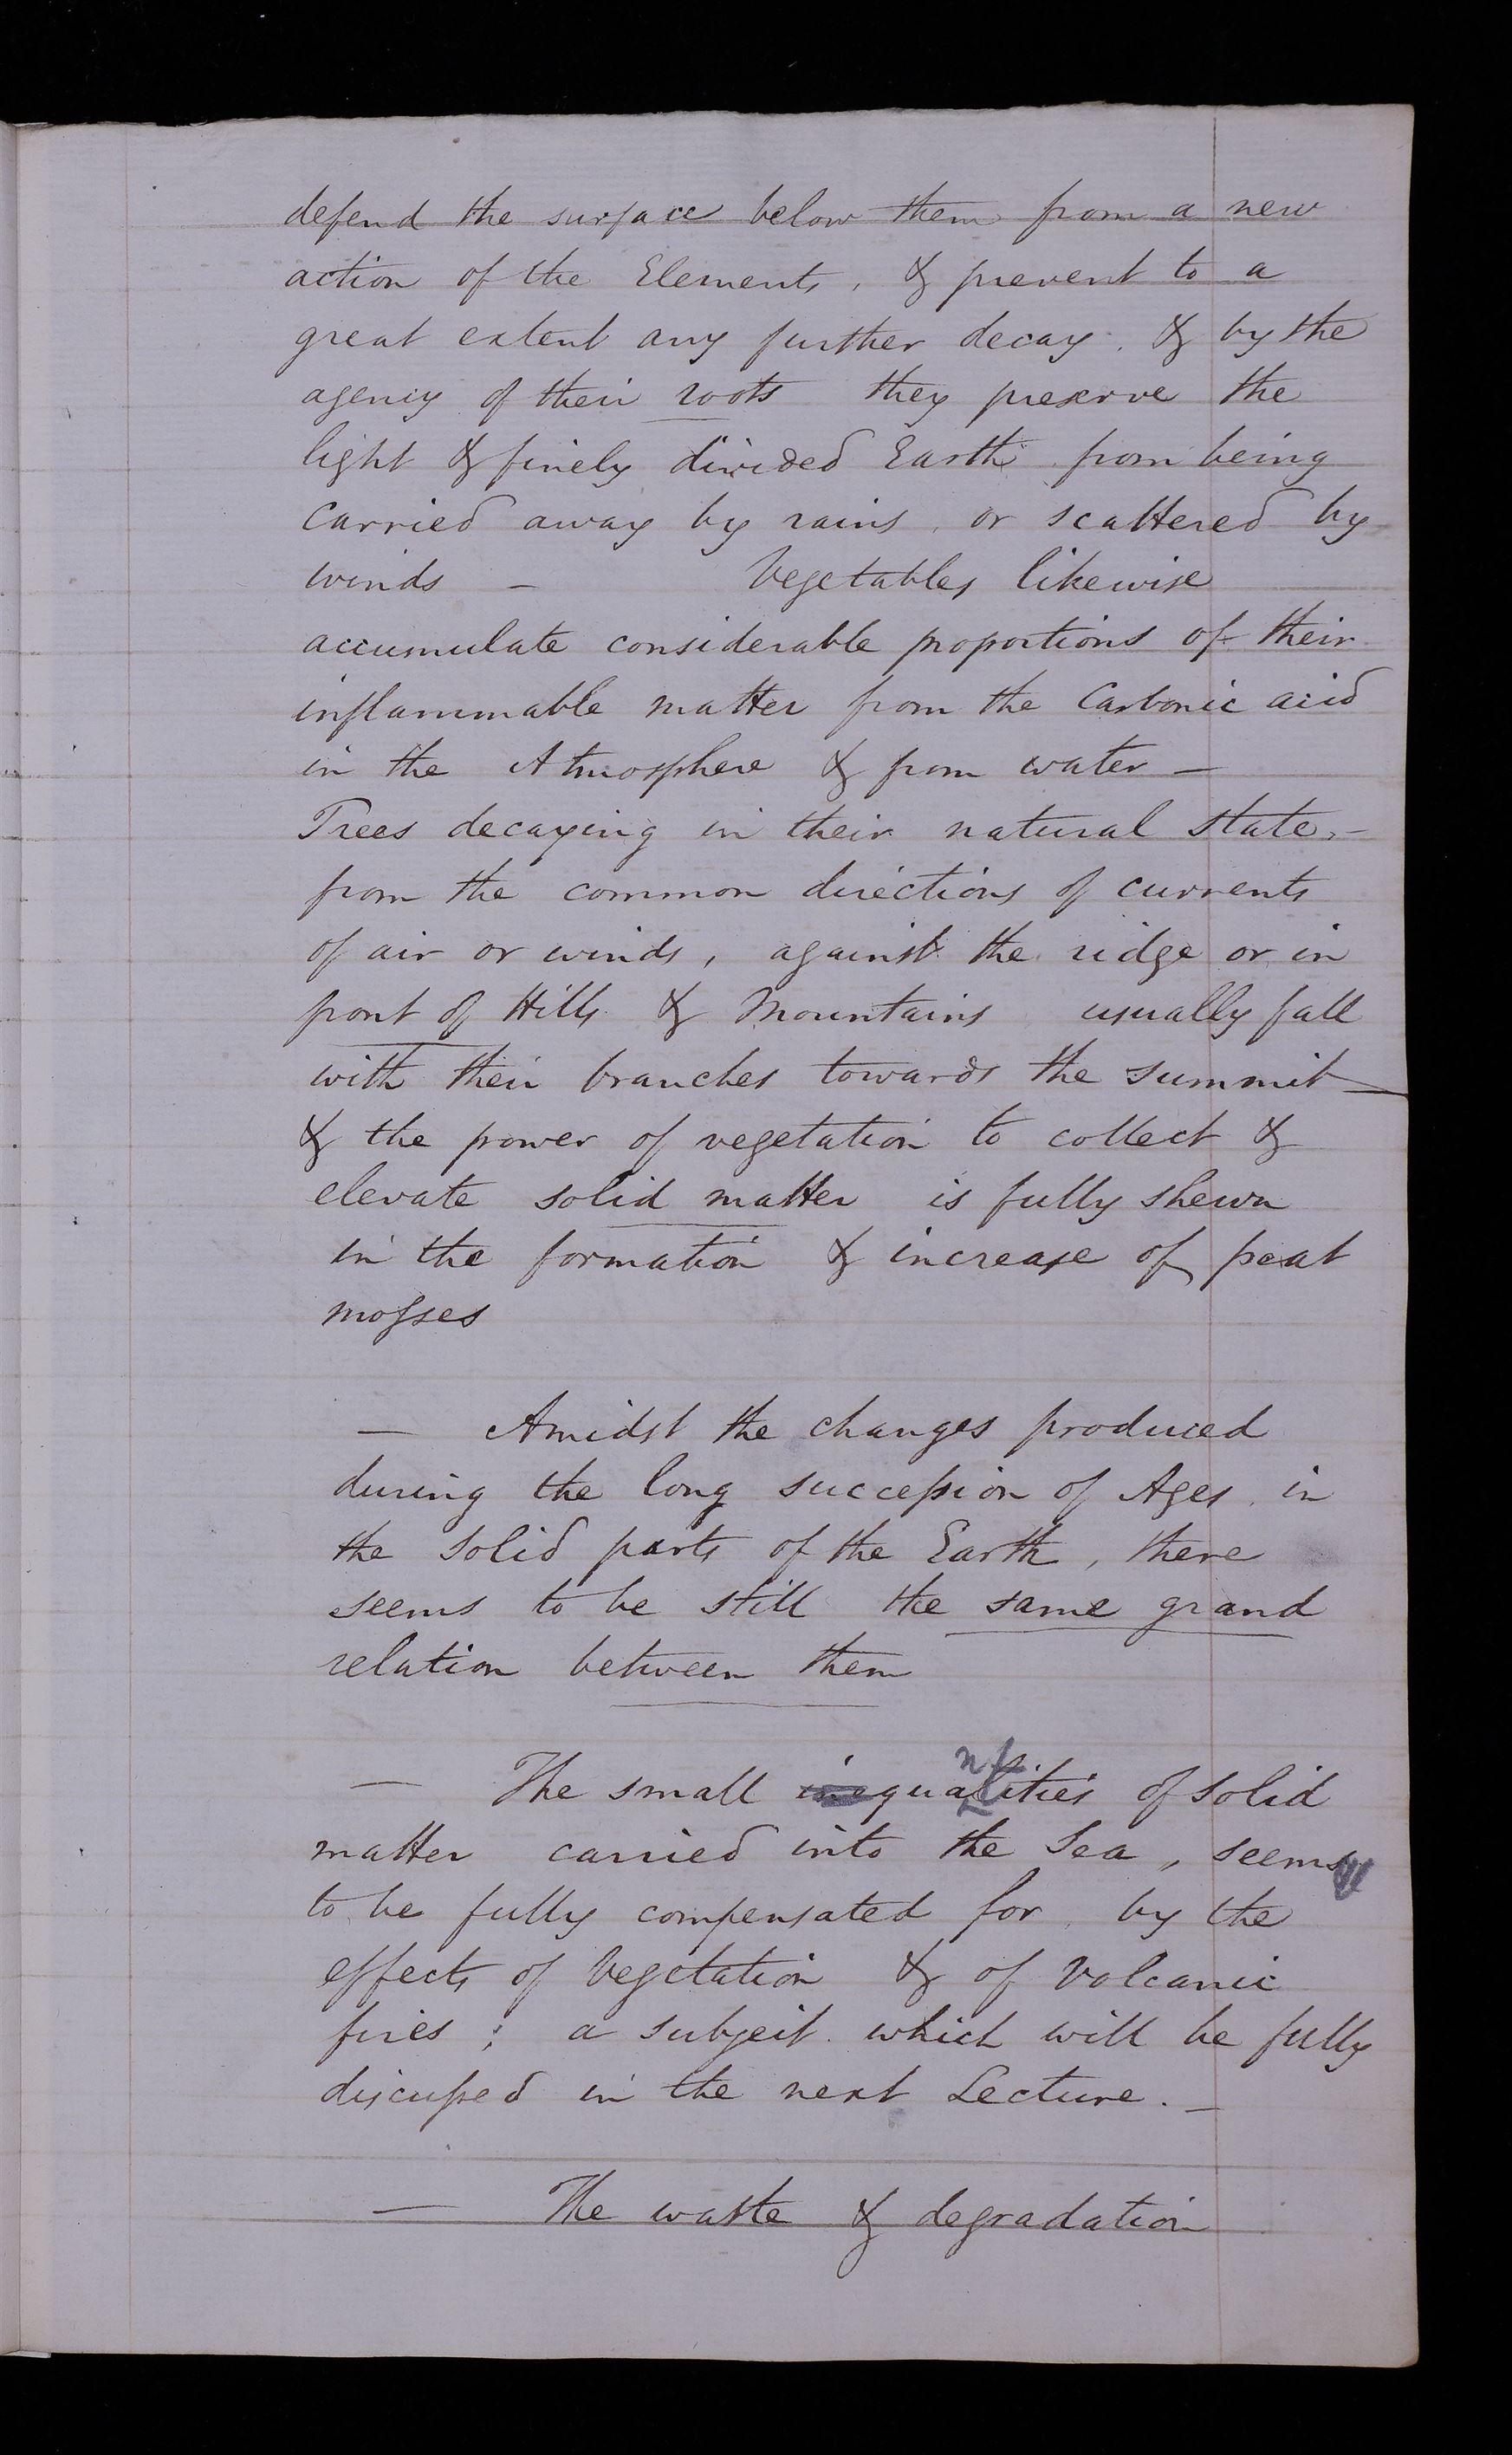 defend the surface below them from a new
action of the Elements, & prevent to a
great extent any further decay. & by the
agency of their roots they preserve the
light & finely divided Earth from being
carried away by rains, or scattered by
winds – Vegetables likewise
accumulate considerable proportions of their
inflammable matter from the Carbonic acid
in the Atmosphere & from water –
Trees decaying in their natural state, –
from the common directions of currents
of air or winds, against the ridge or in
front of Hills & Mountains usually fall
with their branches towards the summit –
& the power of vegetation to collect &
elevate solid matter is fully shewn
in the formation & increase of peat
mosses
– Amidst the changes produced
during the long succession of Ages, in
the solid parts of the Earth, there
seems to be still the same grand
relation between them
– The small inequalities nt of solid
matter carried into the Sea, seems
to be fully compensated for, by the
effects of Vegetation & of Volcanic
fires; a subject which will be fully
discussed in the next Lecture. –
– The waste & degradation